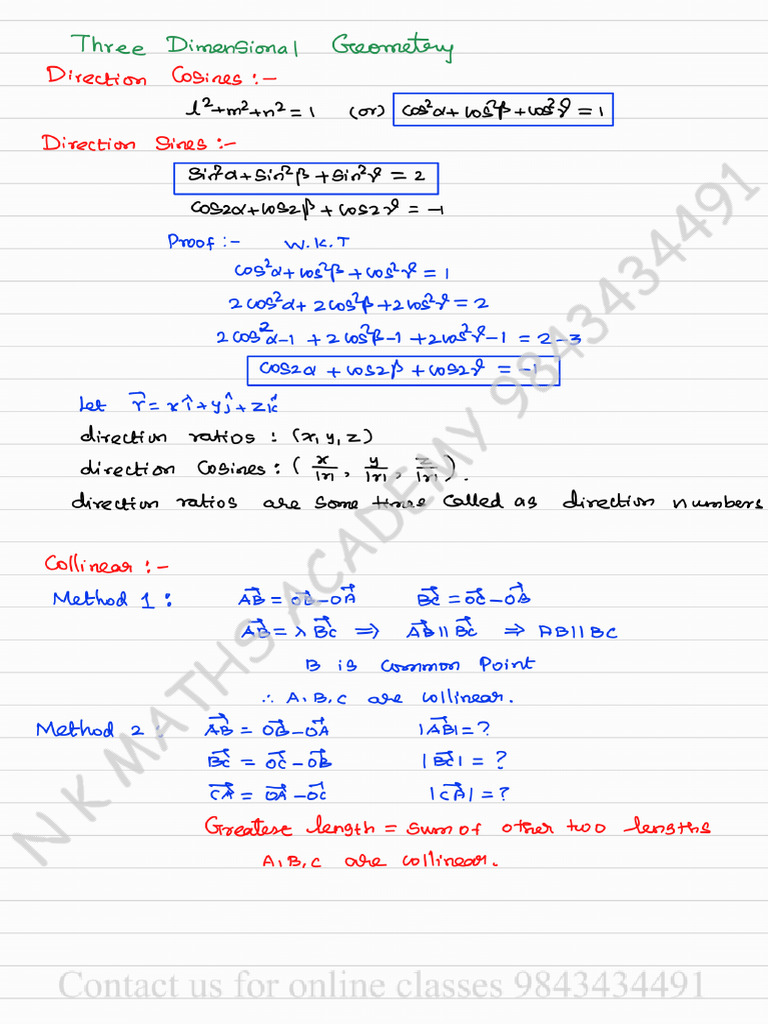 Three Dimensional Geometery
Direction Cosines :-
l²+m²+n² = 1 (or) cos²α + cos²β + cos²γ = 1
Direction Sines :-
sin²α + sin²β + sin²γ = 2
cos2α + cos2β + cos2γ = -1
Proof :- W.K.T
cos²α + cos²β + cos²γ = 1
2cos²α + 2cos²β + 2cos²γ = 2
2cos²α-1 + 2cos²β-1 + 2cos²γ-1 = 2-3
cos2α + cos2β + cos2γ = -1
Let r⃗ = xî + yĵ + zk̂
direction ratios : (x, y, z)
direction Cosines : ( x/|r|, y/|r|, z/|r| ).
direction ratios are some times called as direction numbers
Collinear :-
Method 1 : AB⃗ = OB⃗ - OA⃗ BC⃗ = OC⃗ - OB⃗
AB⃗ = λ BC⃗ ⇒ AB⃗ || BC⃗ ⇒ AB || BC
B is common Point
∴ A, B, C are collinear.
Method 2 : AB⃗ = OB⃗ - OA⃗ |AB⃗| = ?
BC⃗ = OC⃗ - OB⃗ |BC⃗| = ?
CA⃗ = OA⃗ - OC⃗ |CA⃗| = ?
Greatest length = sum of other two lengths
A, B, C are collinear.
N K MATHS ACADEMY 9843434491
Contact us for online classes 9843434491